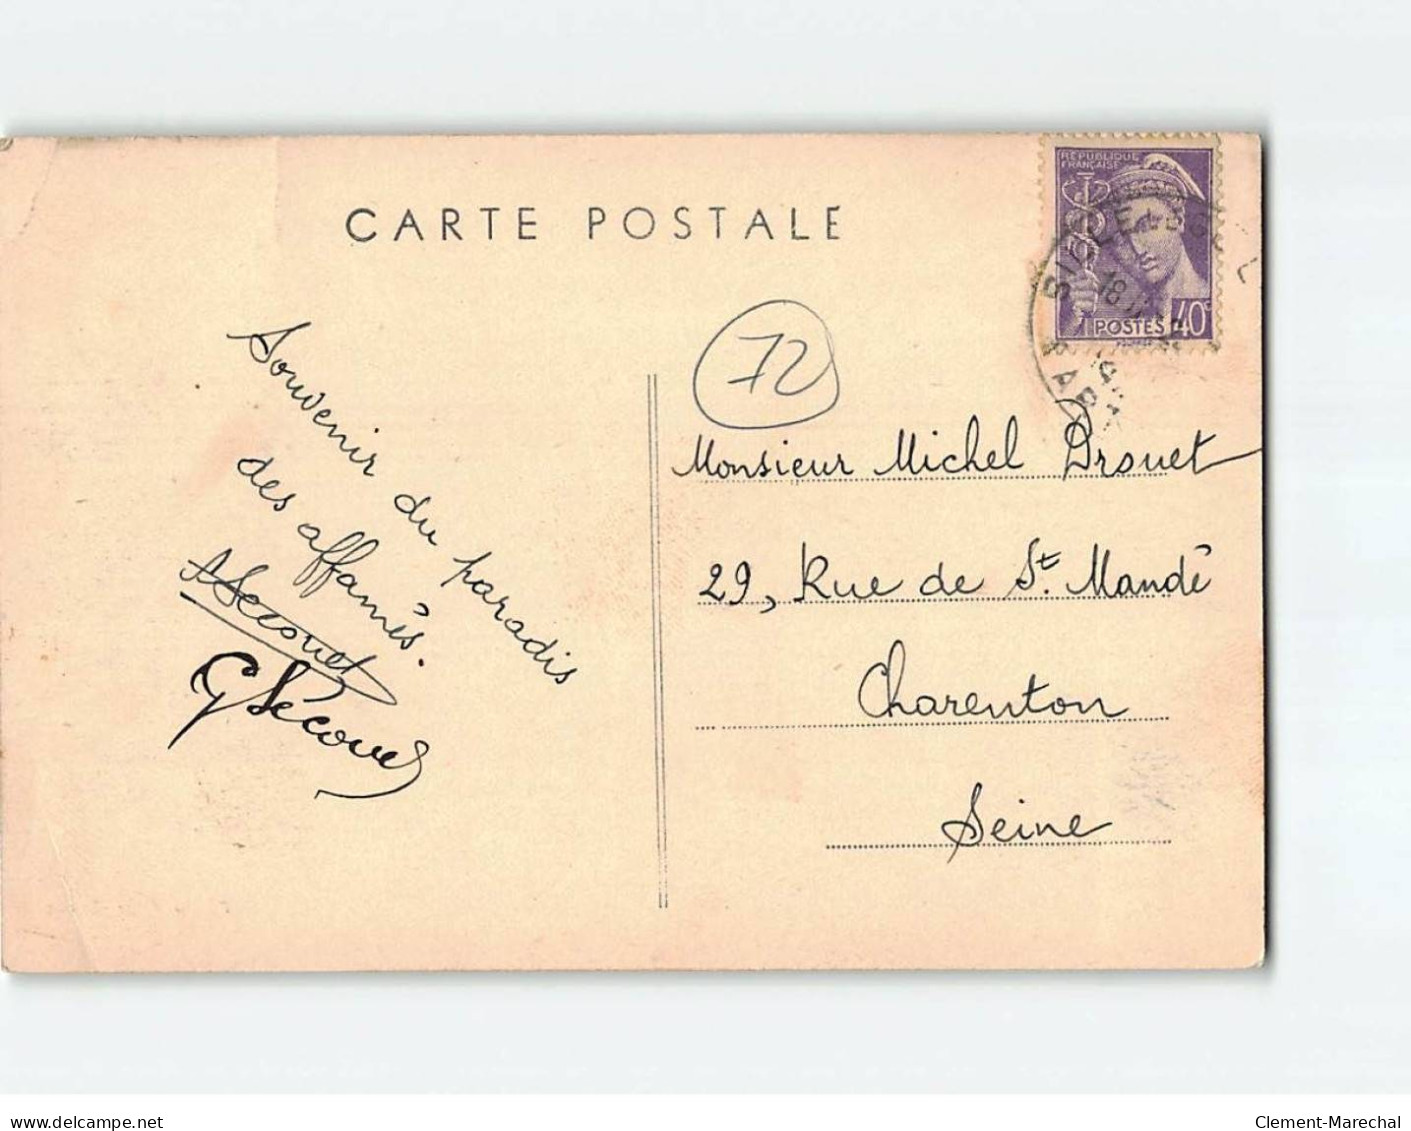 CARTE POSTALE
RÉPUBLIQUE
FRANÇAISE
POSTES 40c
SILLÉ-LE-
18
SAR
72
Souvenir du paradis
des affamés.
G Secouet
Monsieur Michel Drouet
29, Rue de St. Mandé
Charenton
Seine
delcampe.net
Clement-Marechal